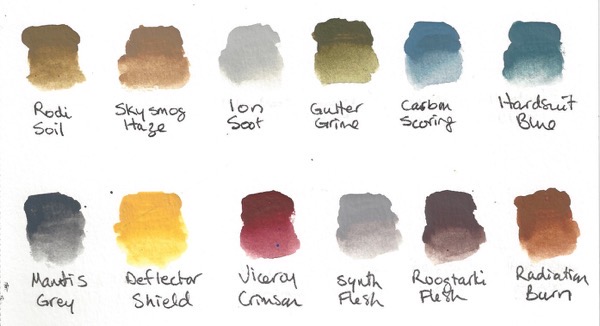 Rodi
Soil
Skysmog
Haze
Ion
Soot
Gutter
Grime
Carbon
Scoring
Hardsuit
Blue
Mantis
Grey
Deflector
Shield
Viceroy
Crimson
Synth
Flesh
Roogtarki
Flesh
Radiation
Burn